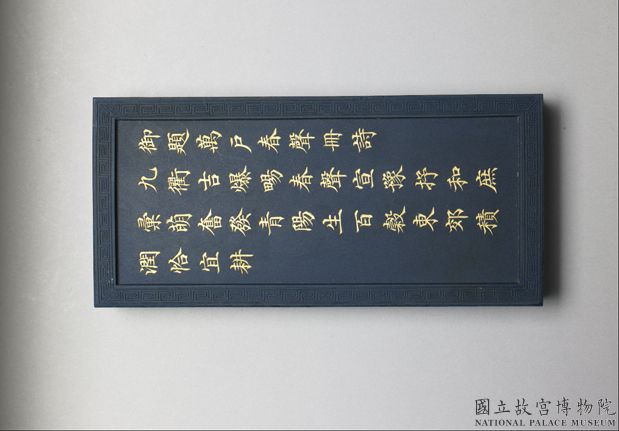 御題萬戶春聲冊詩
九衢吉爆暢春聲宣豫抒和庶
彙萌奮發青陽生百穀東郊積
潤恰宜耕
國立故宮博物院
NATIONAL PALACE MUSEUM